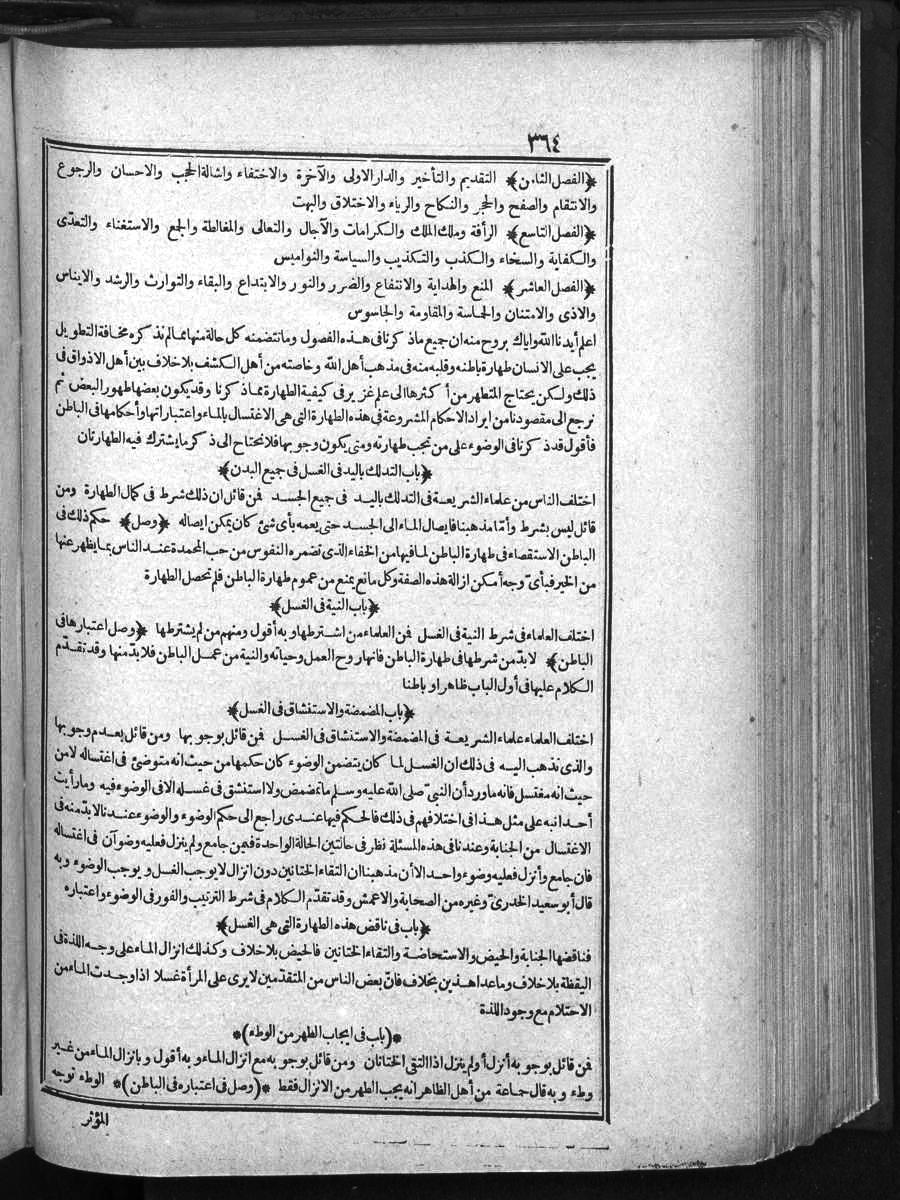 ٣٦٤
﴿الفصل الثامن﴾ التقديم والتأخير والدار الاولى والآخرة والاختفاء واشالة الحجب والاحسان والرجوع
والانتقام والصفح والحجر والنكاح والرياء والاختلاق والبهت
﴿الفصل التاسع﴾ الرأفة وملك الملك والكرامات والآجال والتعالى والمغالطة والجع والاستغناء والتعدّى
والكفاية والسخاء والكذب والتكذيب والسياسة والنواميس
﴿الفصل العاشر﴾ المنع والهداية والانتفاع والضرر والنور والابتداع والبقاء والتوارث والرشد والايناس
والاذى والامتنان والحماسة والمقاومة والجاسوس
اعلم أيدنا الله واياك بروح منه ان جميع ماذكرنا فى هذه الفصول وما تتضمنه كل حالة منها ممالم نذكره مخافة التطويل
يجب على الانسان طهارة باطنه وقلبه منه فى مذهب أهل الله وخاصته من أهل الكشف بلا خلاف بين أهل الاذواق فى
ذلك ولكن يحتاج المتطهر من أكثرها الى علم غزير فى كيفية الطهارة مما ذكرنا وقد يكون بعضها طهور البعض ثم
نرجع الى مقصودنا من ايراد الاحكام المشروعة فى هذه الطهارة التى هى الاغتسال بالماء واعتباراتها وأحكامها فى الباطن
فأقول قد ذكرنا فى الوضوء على من تجب طهارته ومتى يكون وجوبها فلا نحتاج الى ذكر ما يشترك فيه الطهارتان
﴿باب التدلك باليد فى الغسل فى جميع البدن﴾
اختلف الناس من علماء الشريعة فى التدلك باليد فى جميع الجسد فمن قائل ان ذلك شرط فى كمال الطهارة ومن
قائل ليس بشرط وأمّا مذهبنا فايصال الماء الى الجسد حتى يعمه بأى شئ كان يمكن ايصاله ﴿وصل﴾ حكم ذلك فى
الباطن الاستقصاء فى طهارة الباطن لما فيها من الخفاء الذى تضمره النفوس من حب المحمدة عند الناس بما يظهر عنها
من الخير فبأىّ وجه أمكن ازالة هذه الصفة وكل مانع يمنع من عموم طهارة الباطن فلم تحصل الطهارة
﴿باب النية فى الغسل﴾
اختلف العلماء فى شرط النية فى الغسل فمن العلماء من اشترطها وبه أقول ومنهم من لم يشترطها ﴿وصل اعتبارها فى
الباطن﴾ لابدّ من شرطها فى طهارة الباطن فانها روح العمل وحياته والنية من عمل الباطن فلا بدّ منها وقد تقدّم
الكلام عليها فى أول الباب ظاهرا وباطنا
﴿باب المضمضة والاستنشاق فى الغسل﴾
اختلف العلماء علماء الشريعة فى المضمضة والاستنشاق فى الغسل فمن قائل بوجوبها ومن قائل بعدم وجوبها
والذى نذهب اليه فى ذلك ان الغسل لما كان يتضمن الوضوء كان حكمها من حيث انه متوضئ فى اغتساله لا من
حيث انه مغتسل فانه ما ورد أن النبىّ صلى الله عليه وسلم ما تمضمض ولا استنشق فى غسله الا فى الوضوء فيه وما رأيت
أحدا نبه على مثل هذا فى اختلافهم فى ذلك فالحكم فيها عندى راجع الى حكم الوضوء والوضوء عندنا لابدّ منه فى
الاغتسال من الجنابة وعندنا فى هذه المسئلة نظر فى حالتين الحالة الواحدة فيمن جامع ولم ينزل فعليه وضوآن فى اغتساله
فان جامع وأنزل فعليه وضوء واحد الا أن مذهبنا ان التقاء الختانين دون انزال لا يوجب الغسل ويوجب الوضوء وبه
قال أبو سعيد الخدرىّ وغيره من الصحابة والاعمش وقد تقدّم الكلام فى شرط الترتيب والفور فى الوضوء واعتباره
﴿باب فى ناقض هذه الطهارة التى هى الغسل﴾
فناقضها الجنابة والحيض والاستحاضة والتقاء الختانين فالحيض بلا خلاف وكذلك انزال الماء على وجه اللذة فى
اليقظة بلا خلاف وما عدا هذين بخلاف فانّ بعض الناس من المتقدّمين لا يرى على المرأة غسلا اذا وجدت الماء من
الاحتلام مع وجود اللذة
*(باب فى ايجاب الطهر من الوطء)*
فمن قائل بوجوبه أنزل أو لم ينزل اذا التقى الختانان ومن قائل بوجوبه مع انزال الماء وبه أقول وبانزال الماء من غير
وطء وبه قال جماعة من أهل الظاهر انه يجب الطهر من الانزال فقط *(وصل فى اعتباره فى الباطن)* الوطء توجه
المؤثر